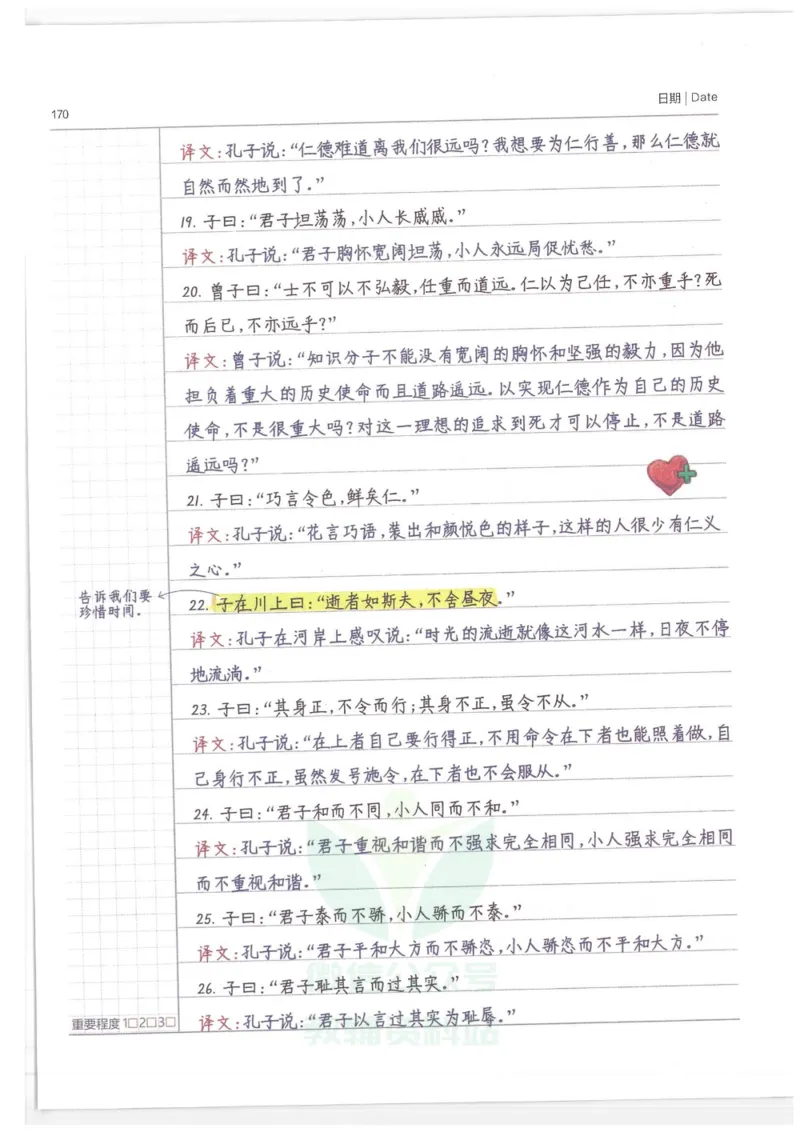 日期 | Date
170
译文:孔子说:“仁德难道离我们很远吗?我想要为仁行善,那么仁德就
自然而然地到了。”
19. 子曰:“君子坦荡荡,小人长戚戚。”
译文:孔子说:“君子胸怀宽阔坦荡,小人永远局促忧愁。”
20. 曾子曰:“士不可以不弘毅,任重而道远。仁以为己任,不亦重乎?死
而后已,不亦远乎?”
译文:曾子说:“知识分子不能没有宽阔的胸怀和坚强的毅力,因为他
担负着重大的历史使命而且道路遥远。以实现仁德作为自己的历史
使命,不是很重大吗?对这一理想的追求到死才可以停止,不是道路
遥远吗?”
21. 子曰:“巧言令色,鲜矣仁。”
译文:孔子说:“花言巧语,装出和颜悦色的样子,这样的人很少有仁义
之心。”
告诉我们要
珍惜时间.
22. 子在川上曰:“逝者如斯夫,不舍昼夜。”
译文:孔子在河岸上感叹说:“时光的流逝就像这河水一样,日夜不停
地流淌。”
23. 子曰:“其身正,不令而行;其身不正,虽令不从。”
译文:孔子说:“在上者自己要行得正,不用命令在下者也能照着做,自
己身行不正,虽然发号施令,在下者也不会服从。”
24. 子曰:“君子和而不同,小人同而不和。”
译文:孔子说:“君子重视和谐而不强求完全相同,小人强求完全相同
而不重视和谐。”
25. 子曰:“君子泰而不骄,小人骄而不泰。”
译文:孔子说:“君子平和大方而不骄恣,小人骄恣而不平和大方。”
微信公众号
26. 子曰:“君子耻其言而过其实。”
译文:孔子说:“君子以言过其实为耻辱。”
教辅资料站
重要程度 1□2□3□